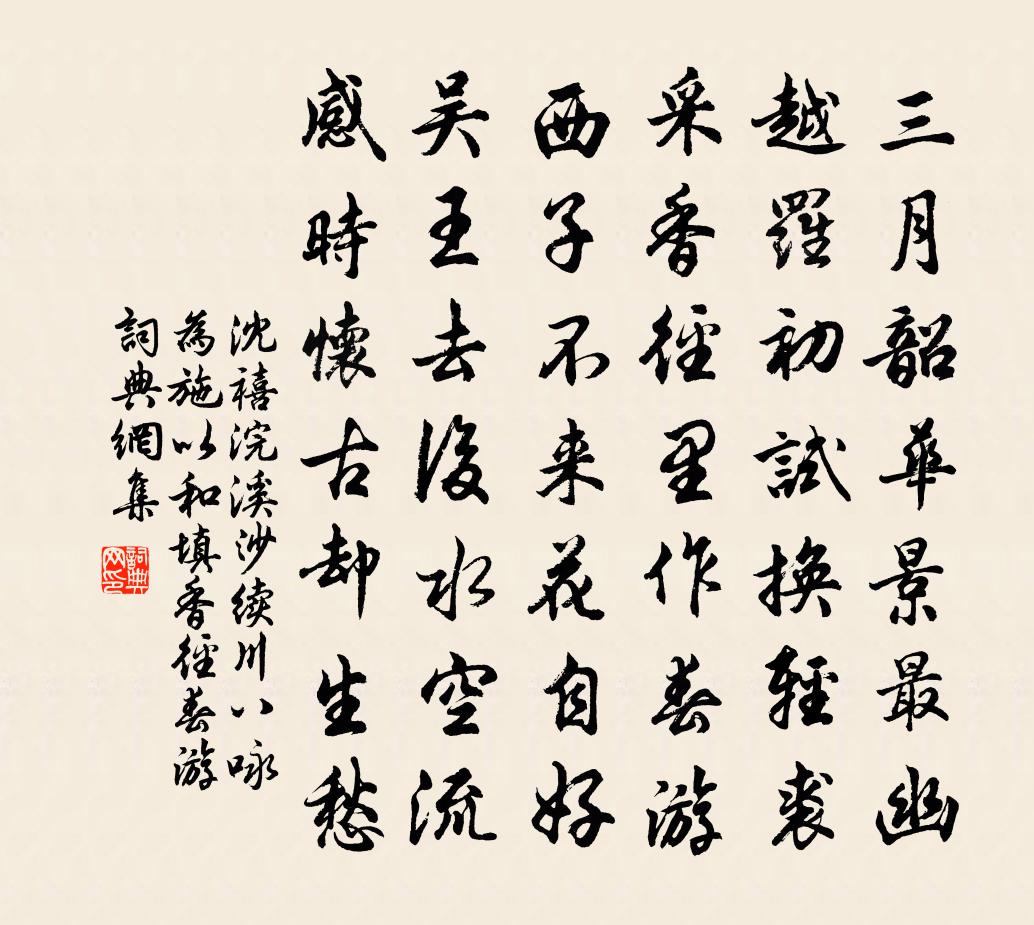 三月韶華景最幽
越羅初試換輕裘
采香徑里作春游
西子不来花自好
吴王去後水空流
感時懷古却生愁
沈禧浣溪沙續川八咏
為施以和填香徑春游
詞典網集
詞典網印